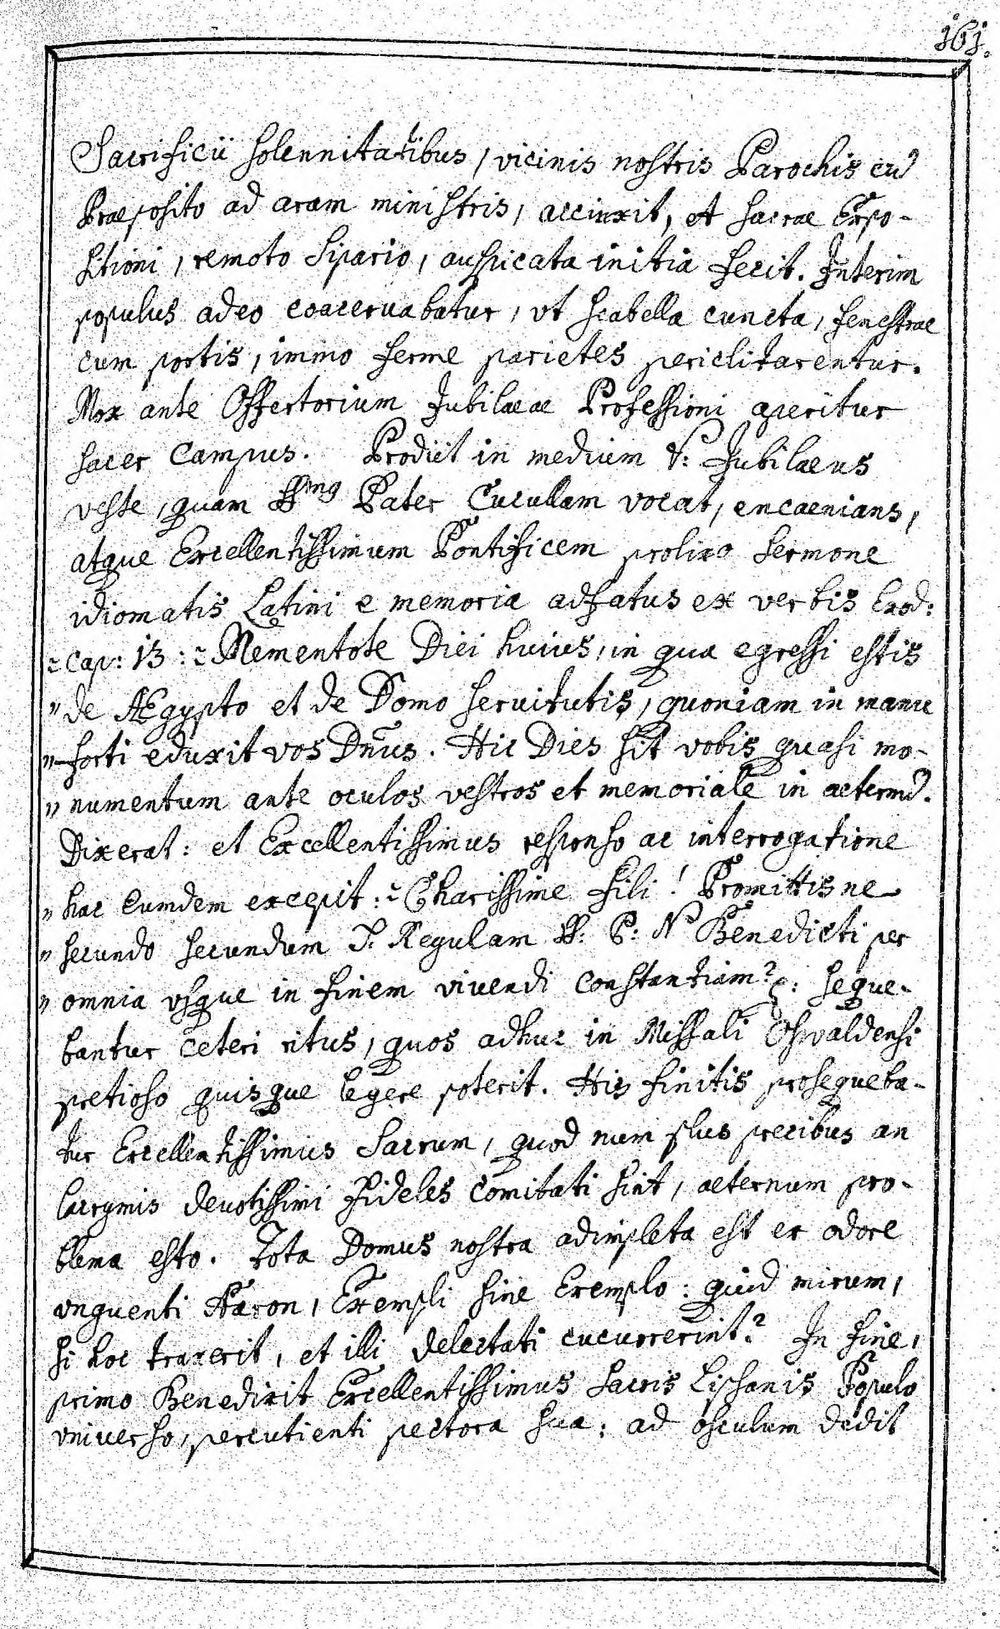 161.
Sacrificii solennitatibus, vicinis nostris Parochis cu
Praeposito ad aram ministris, accinxit, et sacrae Expo-
sitioni, remoto Sipario, auspicata initia fecit. Interim
populus adeo coaceruabatur, vt scabella cuncta, fenestrae
cum portis, immo ferme parietes periclitarentur.
Mox ante Offertorium Jubilaeae Professioni aperitur
sacer Campus. Prodiit in medium V: Jubilaeus
veste, quam SSmg Pater Cucullam vocat, encaenians,
atque Excellentissimum Pontificem prolixo sermone
idiomatis Latini e memoria adfatus ex verbis Exod:
Cap: 13: Mementote Diei huius, in qua egressi estis
" de AEgypto et de Domo seruitutis, quoniam in manu
" forti eduxit vos Dnus. Hic Dies sit vobis quasi mo-
" numentum ante oculos vestros et memoriale in aeternu.
Dixerat: et Excellentissimus responso ac interrogatione
" hac Eumdem excepit: Charissime Fili! Promittisne
" secundo secundum S. Regulam SS: P: N Benedicti per
" omnia vsque in finem viuendi constantiam? : seque-
bantur ceteri ritus, quos adhuc in Missali Oswaldensi
pretioso quisque legere poterit. His finitis prosequeba-
tur Excellentissimus Sacrum, quod num plus precibus an
lacrymis deuotissimi Fideles comitati sint, aeternum pro-
blema esto. Tota Domus nostra adimpleta est ex odore
vnguenti Aaron, Exempli sine Exemplo: quid mirum,
si hoc traxerit, et illi delectati cucurrerint? In fine,
primo Benedixit Excellentissimus sacris Lipsanis Populo
vniuerso, percutienti pectora sua: ad osculum dedit